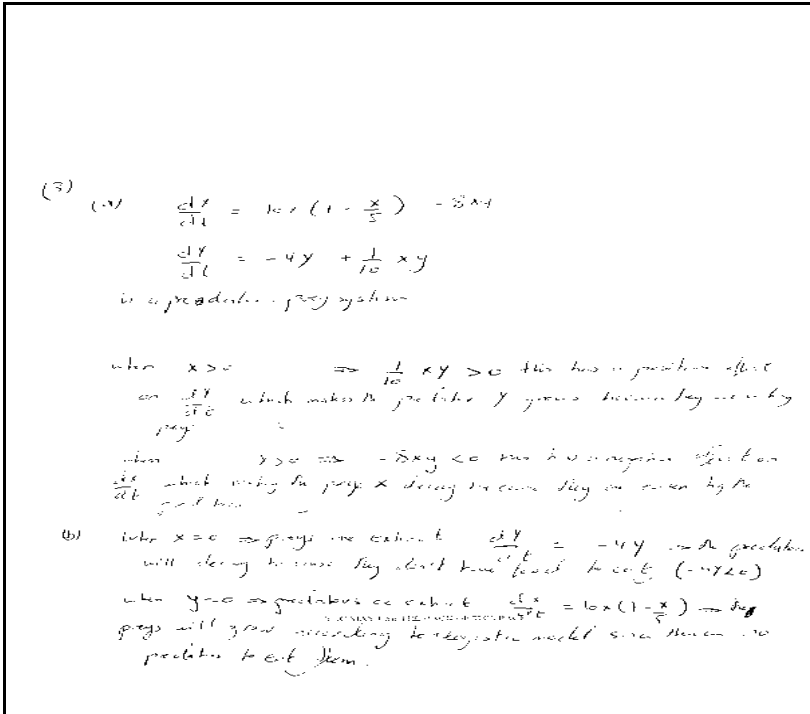 (3)
(a) dx/dt = 10x (1 - x/5) - 8xy
dy/dt = -4y + 1/10 xy
is a predator-prey system
when x>0 ⇒ 1/10 xy >0 this has a positive effect
on dy/dt which makes the predator y grows because they
prey
when y>0 ⇒ -8xy <0 effect on
dx/dt which the prey x decay because they are eaten by the
predators
(b) when x=0 ⇒ preys are extinct dy/dt = -4y ⇒ the predators
will decay because they don't have food to eat. (-4y<0)
when y=0 ⇒ predators are extinct dx/dt = 10x(1-x/5) ⇒ the
preys will grow according to logistic model since there are no
predators to eat them.